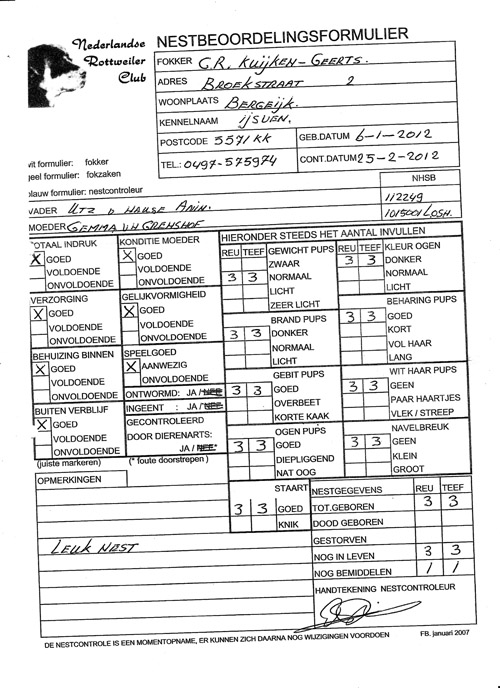 Nederlandse Rottweiler Club
NESTBEOORDELINGSFORMULIER
FOKKER C.R. KUIJKEN-GEERTS.
ADRES BROEKSTRAAT 2
WOONPLAATS BERGEIJK.
KENNELNAAM IJSVEN.
POSTCODE 5571 KK GEB.DATUM 6-1-2012
TEL.: 0497-575974 CONT.DATUM 25-2-2012
wit formulier: fokker
geel formulier: fokzaken
blauw formulier: nestcontroleur
NHSB
VADER UTZ D HAUSE ANIN. 112249
MOEDER GEMMA V.H GRENSHOF 1015001 LOSH.
TOTAAL INDRUK
X GOED
VOLDOENDE
ONVOLDOENDE
KONDITIE MOEDER
X GOED
VOLDOENDE
ONVOLDOENDE
VERZORGING
X GOED
VOLDOENDE
ONVOLDOENDE
GELIJKVORMIGHEID
X GOED
VOLDOENDE
ONVOLDOENDE
BEHUIZING BINNEN
X GOED
VOLDOENDE
ONVOLDOENDE
SPEELGOED
X AANWEZIG
ONVOLDOENDE
BUITEN VERBLIJF
X GOED
VOLDOENDE
ONVOLDOENDE
(juiste markeren)
ONTWORMD: JA / NEE
INGEENT : JA / NEE
GECONTROLEERD
DOOR DIERENARTS:
JA / NEE*
(* foute doorstrepen )
HIERONDER STEEDS HET AANTAL INVULLEN
REU TEEF GEWICHT PUPS
ZWAAR
3 3 NORMAAL
LICHT
ZEER LICHT
BRAND PUPS
3 3 DONKER
NORMAAL
LICHT
GEBIT PUPS
3 3 GOED
OVERBEET
KORTE KAAK
OGEN PUPS
3 3 GOED
DIEPLIGGEND
NAT OOG
STAART
3 3 GOED
KNIK
REU TEEF KLEUR OGEN
3 3 DONKER
NORMAAL
LICHT
BEHARING PUPS
3 3 GOED
KORT
VOL HAAR
LANG
WIT HAAR PUPS
3 3 GEEN
PAAR HAARTJES
VLEK / STREEP
NAVELBREUK
3 3 GEEN
KLEIN
GROOT
OPMERKINGEN
LEUK NEST
NESTGEGEVENS REU TEEF
TOT.GEBOREN 3 3
DOOD GEBOREN
GESTORVEN
NOG IN LEVEN 3 3
NOG BEMIDDELEN 1 1
HANDTEKENING NESTCONTROLEUR
DE NESTCONTROLE IS EEN MOMENTOPNAME, ER KUNNEN ZICH DAARNA NOG WIJZIGINGEN VOORDOEN FB. januari 2007